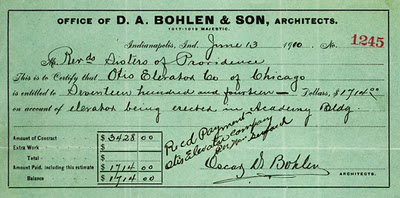 OFFICE OF D. A. BOHLEN & SON, ARCHITECTS.
1017-1018 MAJESTIC.
Indianapolis, Ind. June 13 1910 No. 1245
To Revds Sisters of Providence
This is to Certify that Otis Elevator Co of Chicago
is entitled to Seventeen hundred and fourteen Dollars, $1714.00
on account of elevator being erected in Academy Bldg.
Amount of Contract $3428 00
Extra Work $
Total $
Amount Paid, including this estimate $1714 00
Balance $1714 00
Recd Payment
Otis Elevator Company
Oscar D Bohlen
ARCHITECTS.